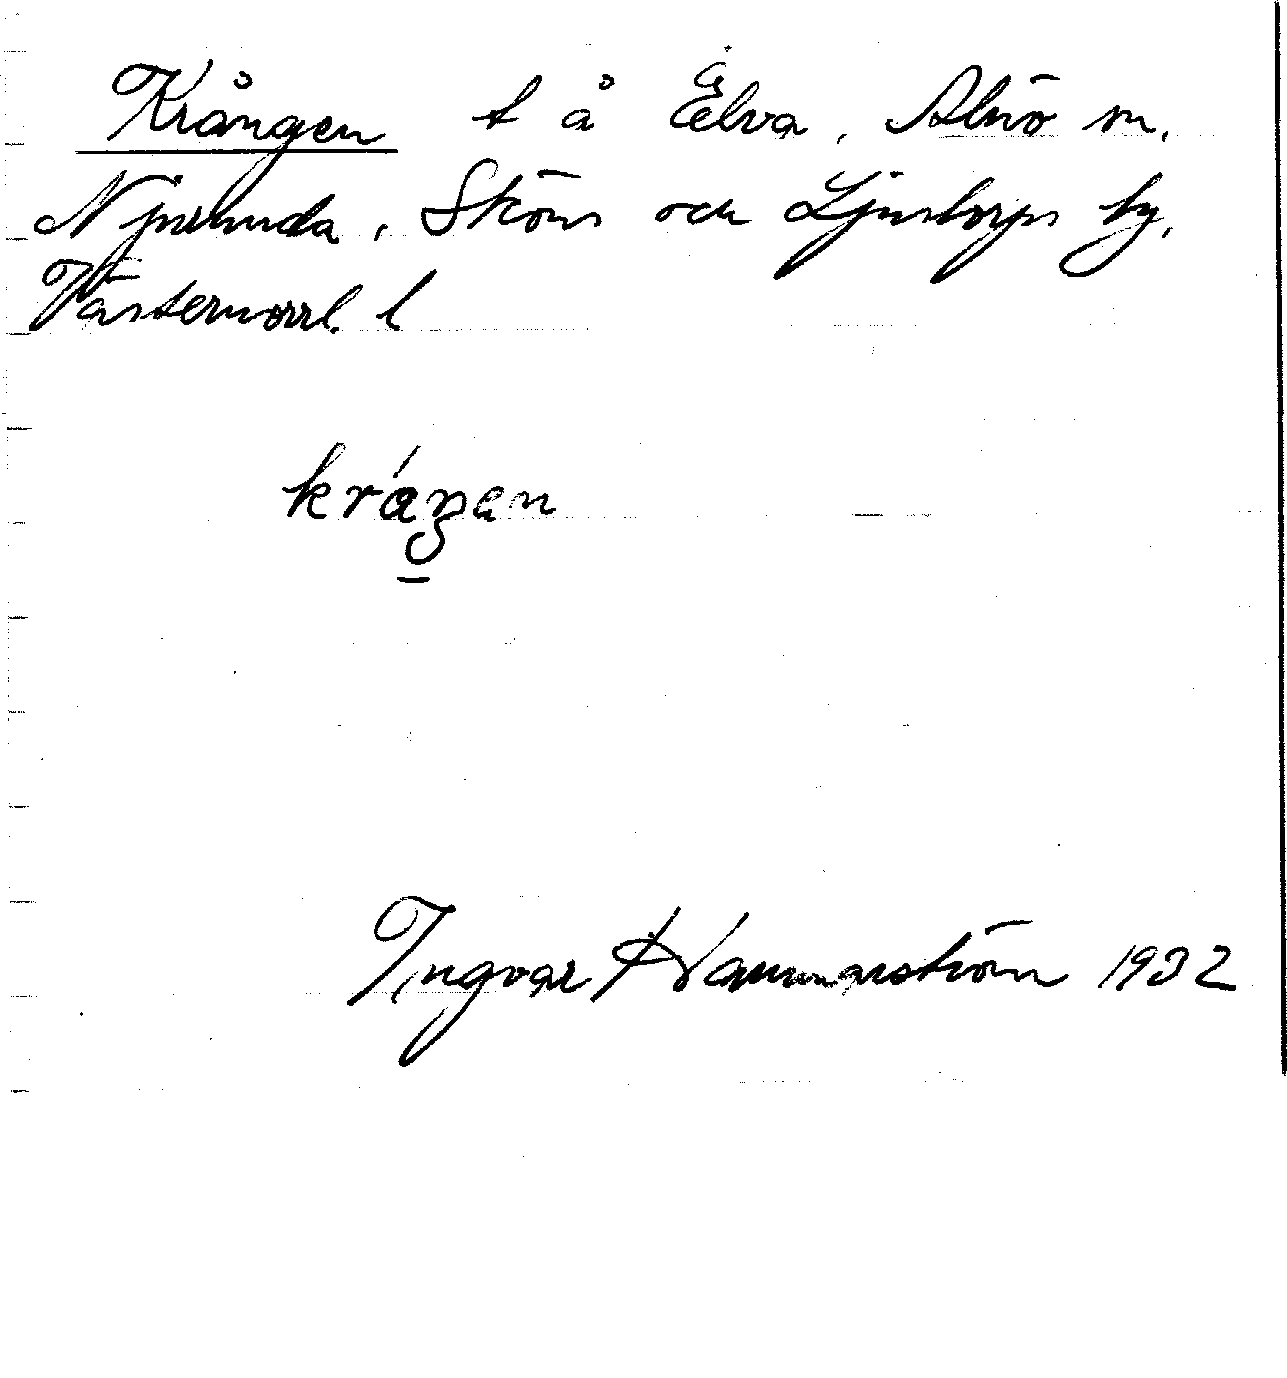 Krången t å Elva, Alnö sn,
Njurunda, Sköns och Ljustorps tg,
Västernorrl. l
kráŋen
Ingvar Hammarström 1932